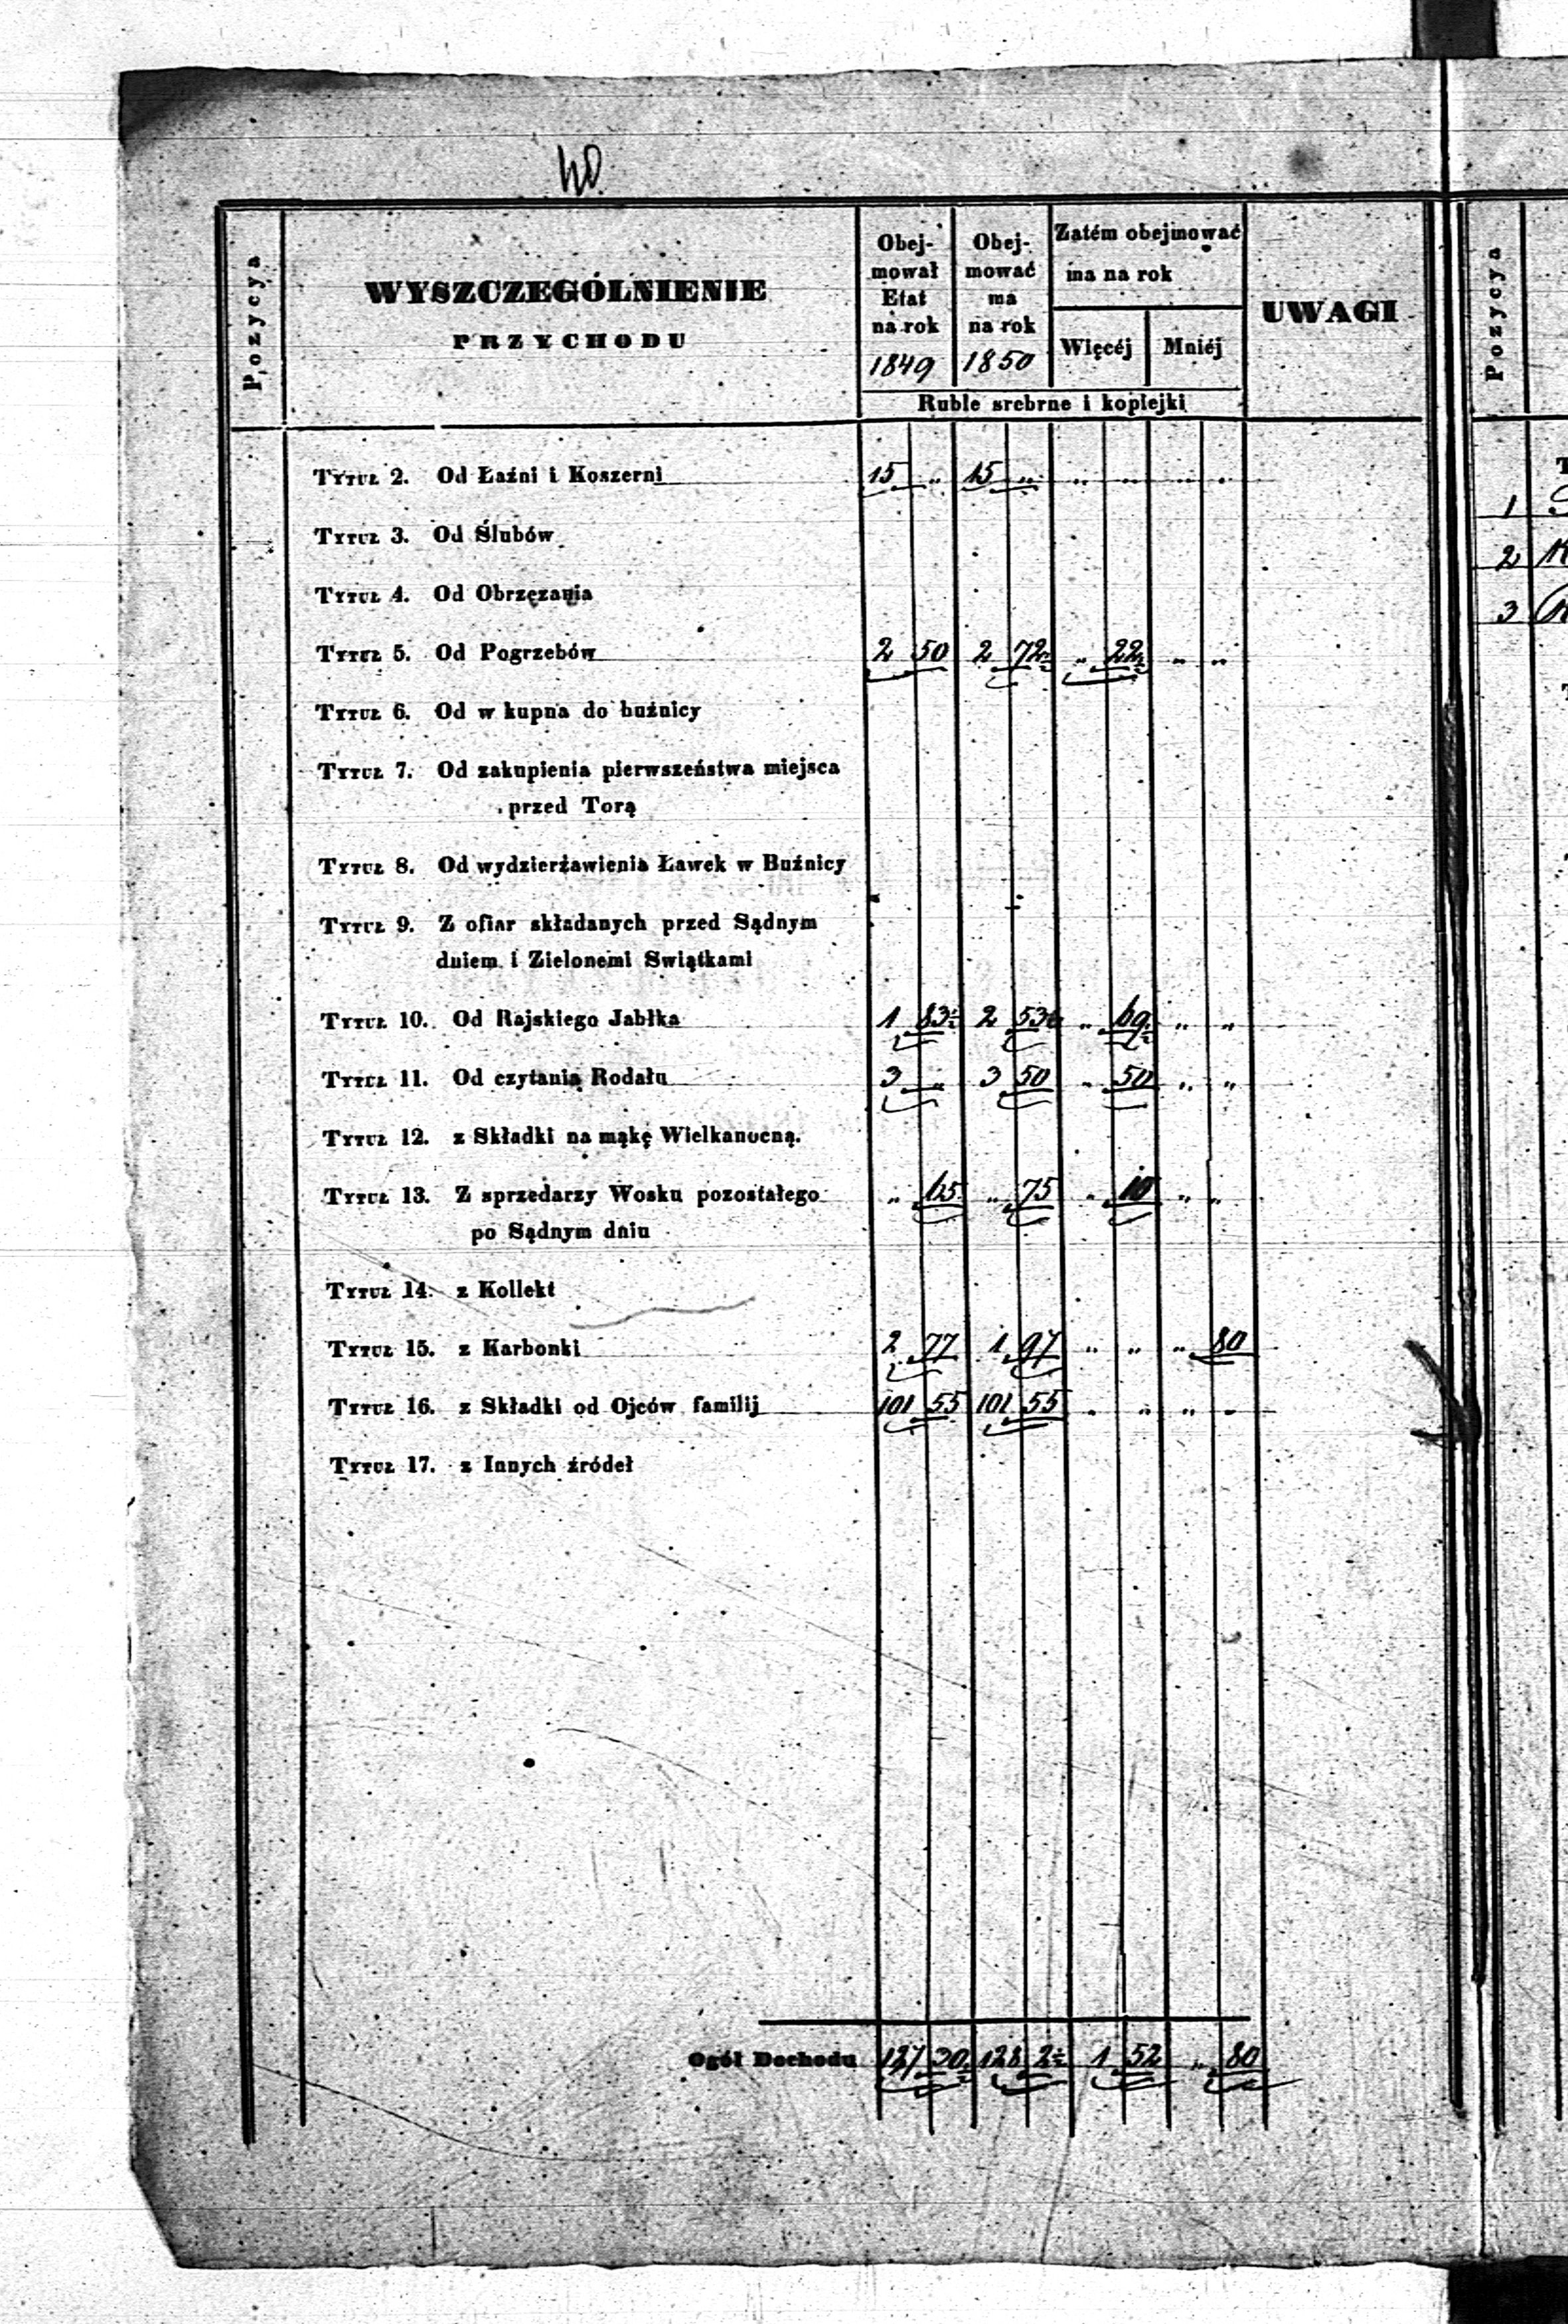 Pozycya
WYSZCZEGÓLNIENIE
PRZYCHODU
Obej-
mował
Etat
na rok
1849
Obej-
mować
ma
na rok
1850
Zatém obejmować
ma na rok
Więcéj Mniéj
Ruble srebrne i kopiejki
UWAGI
Pozycya
Tytuł 2. Od Łaźni i Koszerni 15 „ 15 „ „ „ „ „
Tytuł 3. Od Ślubów
Tytuł 4. Od Obrzęzania
Tytuł 5. Od Pogrzebów 2 50 2 72½ „ 22½ „ „
Tytuł 6. Od w kupna do buźnicy
Tytuł 7. Od zakupienia pierwszeństwa miejsca
przed Torą
Tytuł 8. Od wydzierżawienia Ławek w Buźnicy
Tytuł 9. Z ofiar składanych przed Sądnym
dniem i Zielonemi Swiątkami
Tytuł 10. Od Rajskiego Jabłka 1 83½ 2 53 „ 69½ „ „
Tytuł 11. Od czytania Rodału 3 „ 3 50 „ 50 „ „
Tytuł 12. z Składki na mąkę Wielkanocną.
Tytuł 13. Z sprzedarzy Wosku pozostałego „ 65 „ 75 „ 10 „ „
po Sądnym dniu
Tytuł 14. z Kollekt
Tytuł 15. z Karbonki 2 77 1 97 „ „ „ 80
Tytuł 16. z Składki od Ojców familij 101 55 101 55 „ „ „ „
Tytuł 17. z Innych źródeł
Ogół Dochodu 127 30 128 2½ 1 52 „ 80
1
2
3